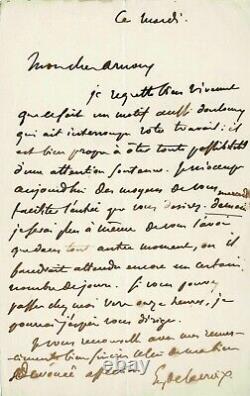 Ce mardi.
Mon cher Arnoux
je regrette bien vivement
que ce soit un motif aussi douloureux
qui ait interrompu votre travail : il
est bien propre à ôter toute possibilité
d'une attention soutenue. Je m'occupe
aujourd'hui des moyens de vous
faciliter l'entrée que vous désirez. demain
je serai plus à même de vous l'avoir
que dans tout autre moment, ou il
faudrait attendre encore un certain
nombre de jours. Si vous pouvez
passer chez moi vers onze heures, je
pourrai j'espère vous diriger.
Je vous renouvelle avec mes remer-
ciements bien sincères
dévouée affection
Eg Delacroix